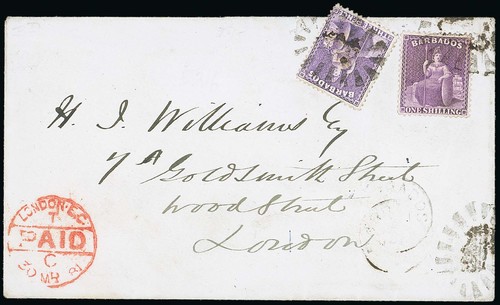 BARBADOS
BARBADOS
ONE SHILLING
H. J. Williams Esq
7A Goldsmith Street
Wood Street
London
LONDON.E.C
T
PAID
C
30 MR 81